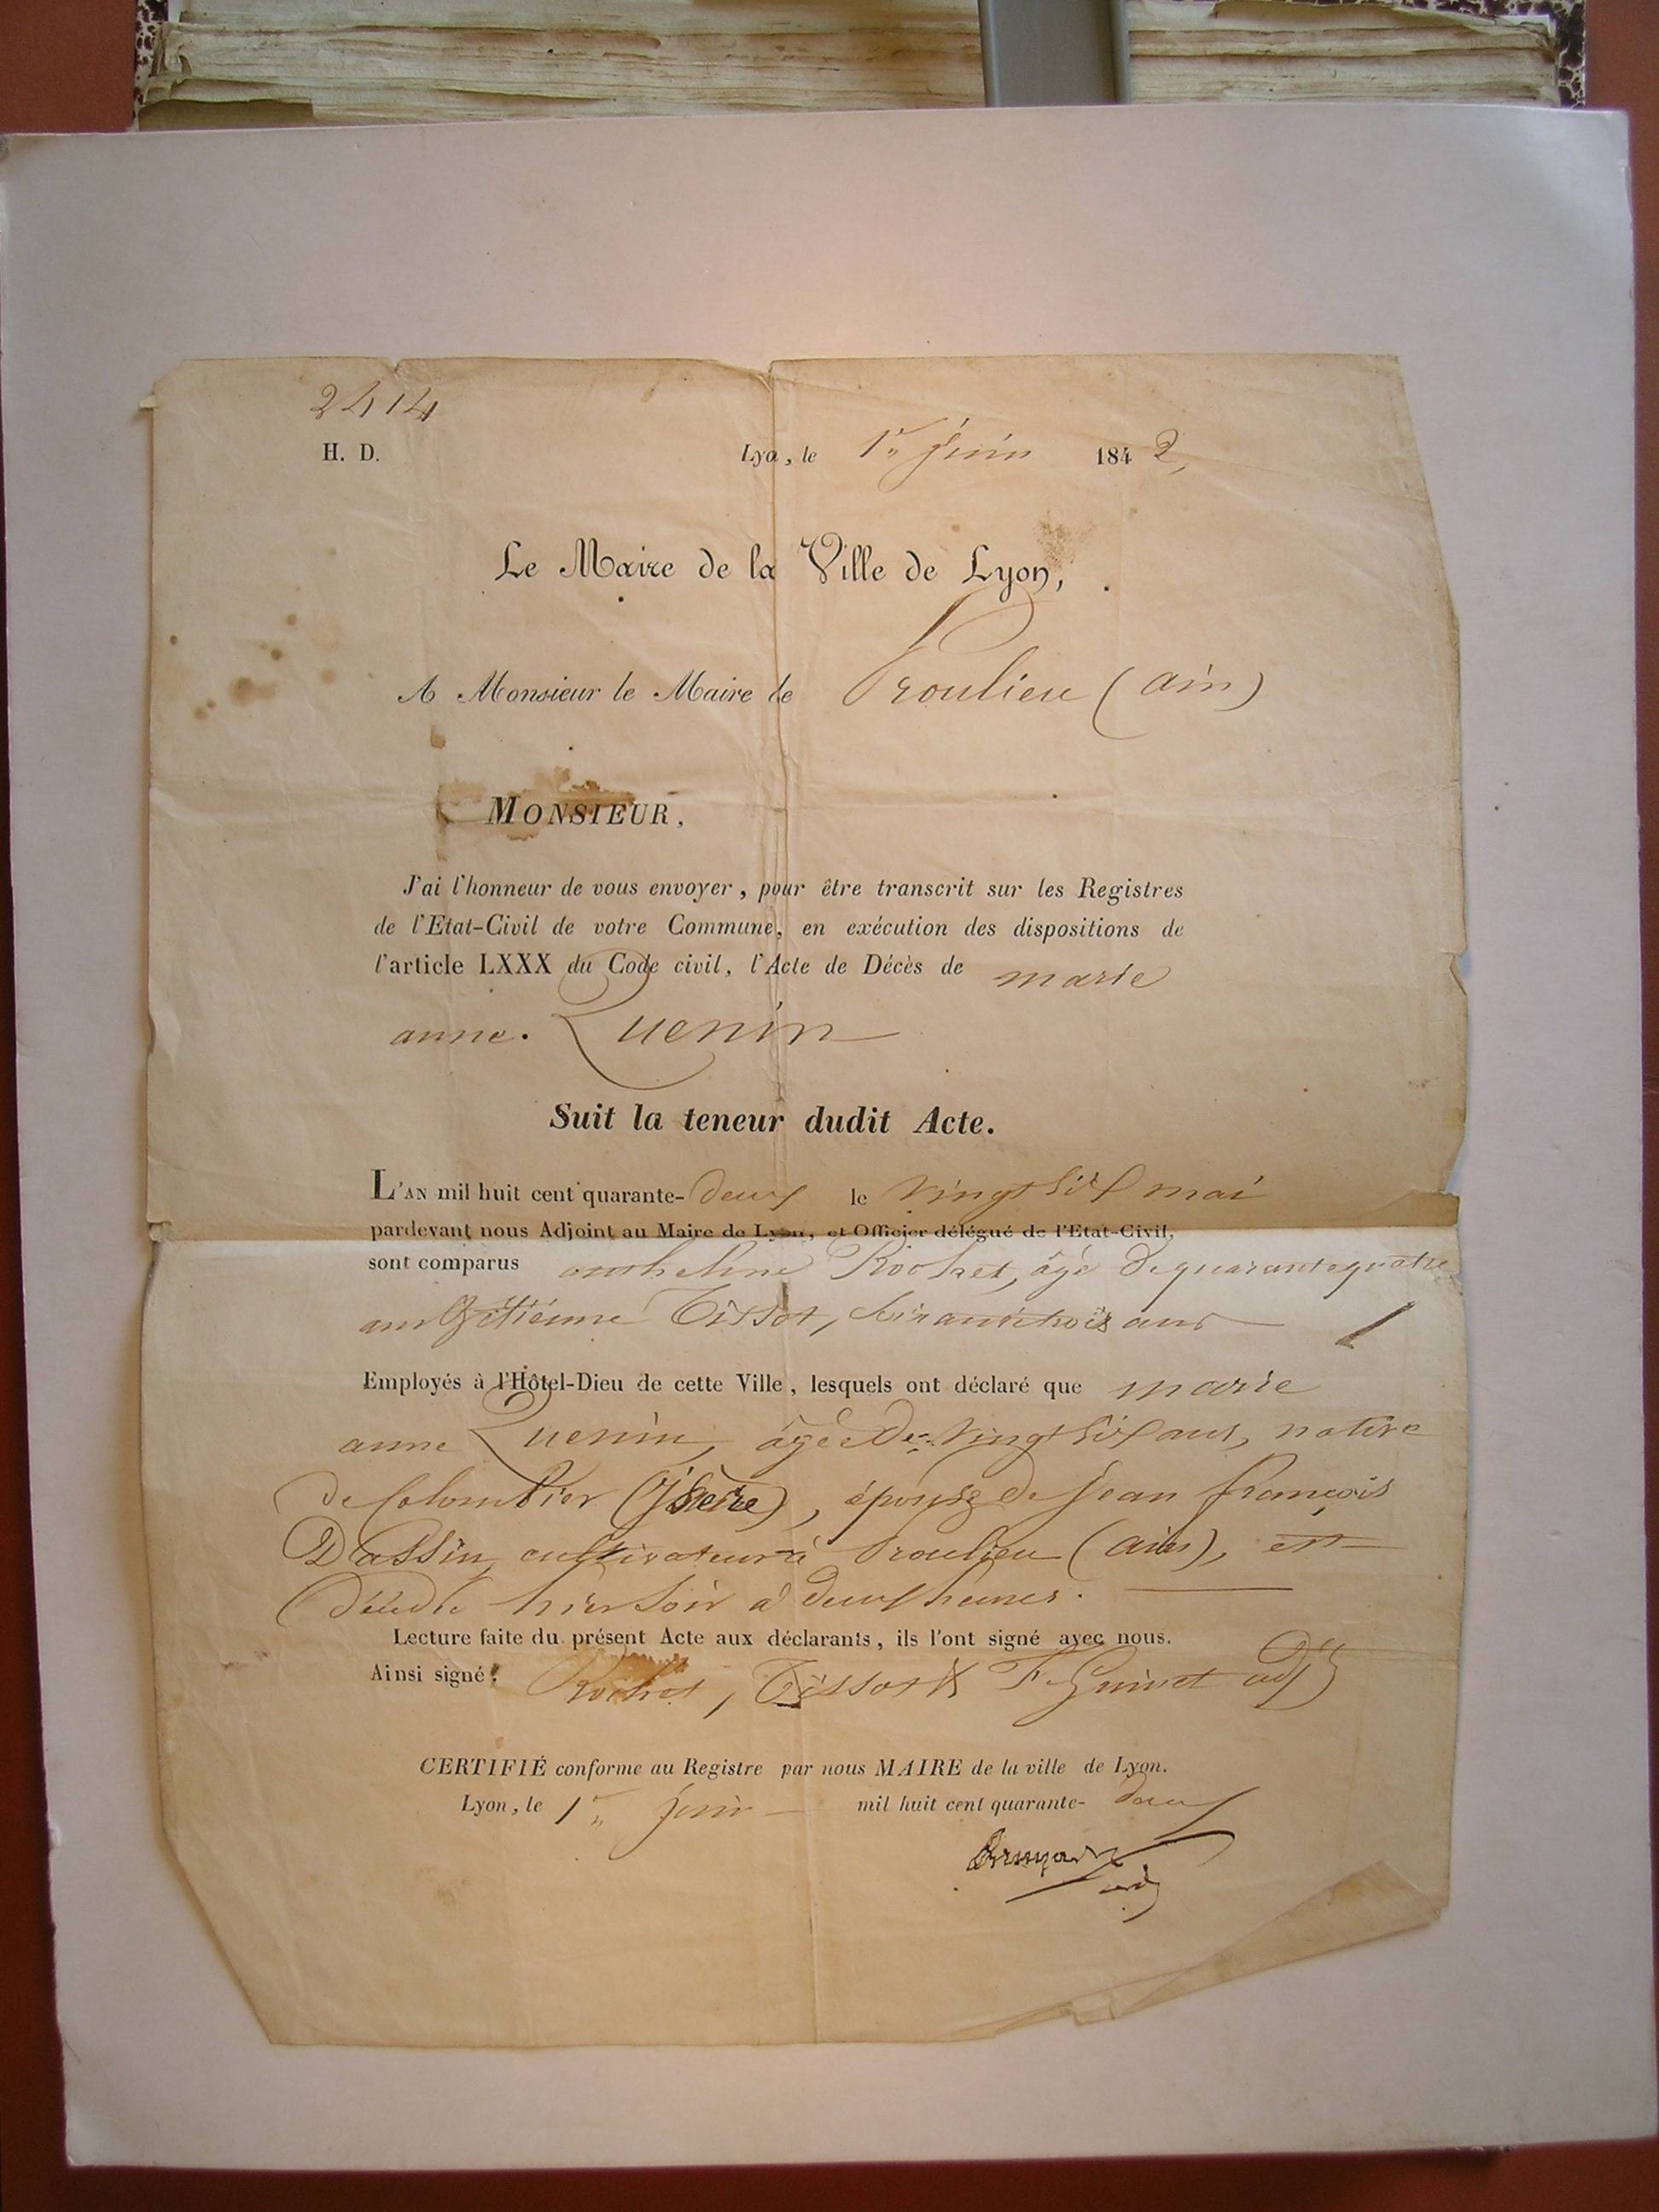 2414
H. D.
Lyon, le 1er juin 1842,
Le Maire de la Ville de Lyon,
A Monsieur le Maire de Proulieu (ain)
MONSIEUR,
J'ai l'honneur de vous envoyer, pour être transcrit sur les Registres
de l'Etat-Civil de votre Commune, en exécution des dispositions de
l'article LXXX du Code civil, l'Acte de Décès de marie
anne. Quenin
Suit la teneur dudit Acte.
L'AN mil huit cent quarante-deux le vingt six mai
pardevant nous Adjoint au Maire de Lyon, et Officier délégué de l'Etat-Civil,
sont comparus anthelme Rochet, âgé de quarante quatre
ans & etienne Tissot, ans
Employés à l'Hôtel-Dieu de cette Ville, lesquels ont déclaré que marie
anne Quenin, âgée de vingt six ans, native
de Colombier (isère), épouse de jean françois
Dassin, cultivateur à Proulieu (ain), est
décédée hier soir à deux heures.
Lecture faite du présent Acte aux déclarants, ils l'ont signé avec nous.
Ainsi signé: Rochet, Tissot & F. Guinet adjt
CERTIFIÉ conforme au Registre par nous MAIRE de la ville de Lyon.
Lyon, le 1er juin mil huit cent quarante-deux
adj